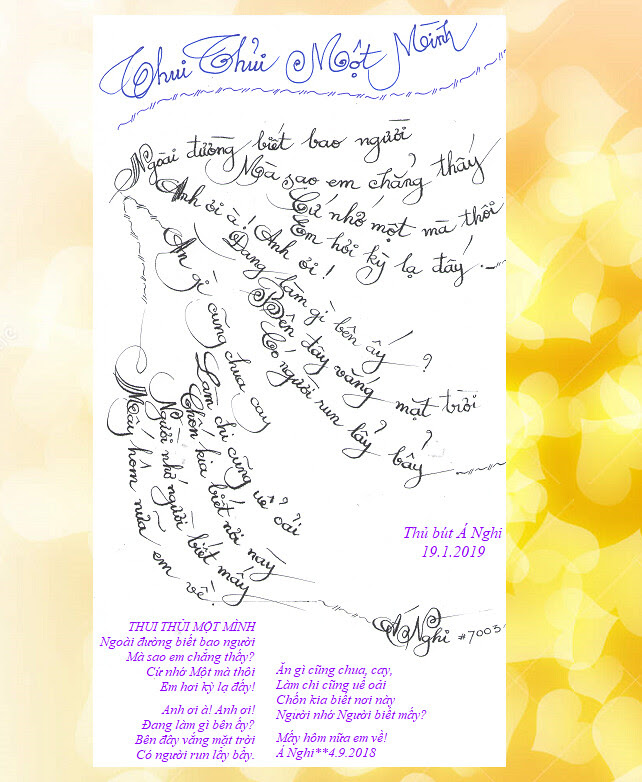 Thui Thủi Một Mình
Ngoài đường biết bao người
Mà sao em chẳng thấy
Cứ nhớ một mà thôi
Em hơi kỳ lạ đấy.
Anh ơi à! Anh ơi!
Đang làm gì bên ấy?
Bên đây vắng mặt trời
Có người run lẩy bẩy
Ăn gì cũng chua cay
Làm chi cũng uể oải
Chốn kia biết nơi này
Người nhớ người biết mấy
Mấy hôm nữa em về.
Á Nghi #7003
Thủ bút Á Nghi
19.1.2019
THUI THỦI MỘT MÌNH
Ngoài đường biết bao người
Mà sao em chẳng thấy?
Cứ nhớ Một mà thôi
Em hơi kỳ lạ đấy!
Anh ơi à! Anh ơi!
Đang làm gì bên ấy?
Bên đây vắng mặt trời
Có người run lẩy bẩy.
Ăn gì cũng chua, cay,
Làm chi cũng uể oải
Chốn kia biết nơi này
Người nhớ Người biết mấy?
Mấy hôm nữa em về!
Á Nghi**4.9.2018